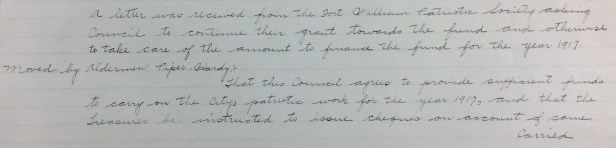 A letter was received from the Fort William Patriotic Society asking
Council to continue their grant towards the fund and otherwise
to take care of the amount to finance the fund for the year 1917.
Moved by Aldermen Piper-Hardy:-
That this Council agrees to provide sufficient funds
to carry on the City's patriotic work for the year 1917, and that the
Treasurer be instructed to issue cheques on account of same.
Carried